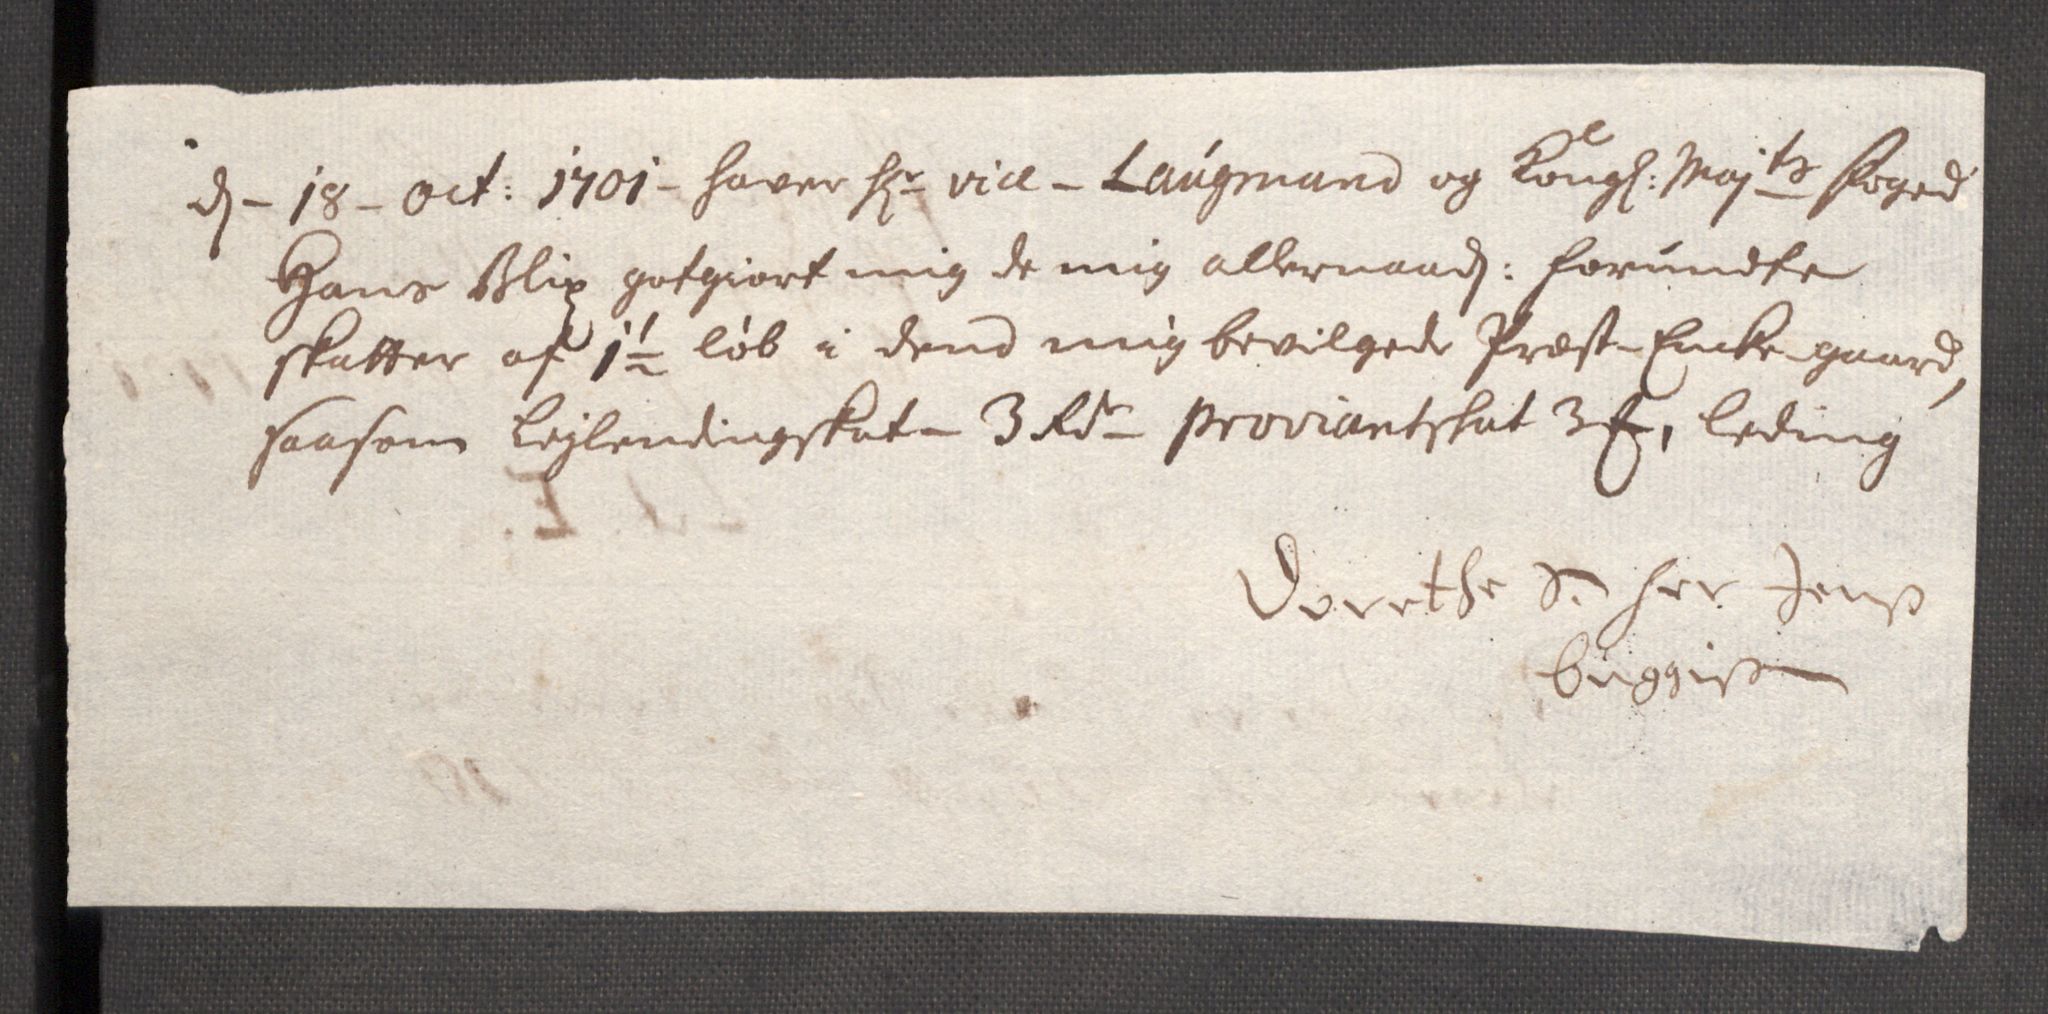 d – 18 – Oct: 1701 – haver Hr vice – Laugmand og Kongl: Majts foged
Hans Blix gotgiort mig de mig allernaad: forundte
skatter af 1 1/2 løb i dend mig bevilgede Præst-Enke-gaard,
saasom Lejlendingskat – 3 Rdr proviantskat 3 leding
Dorethe Sr her Jenß
buggiß